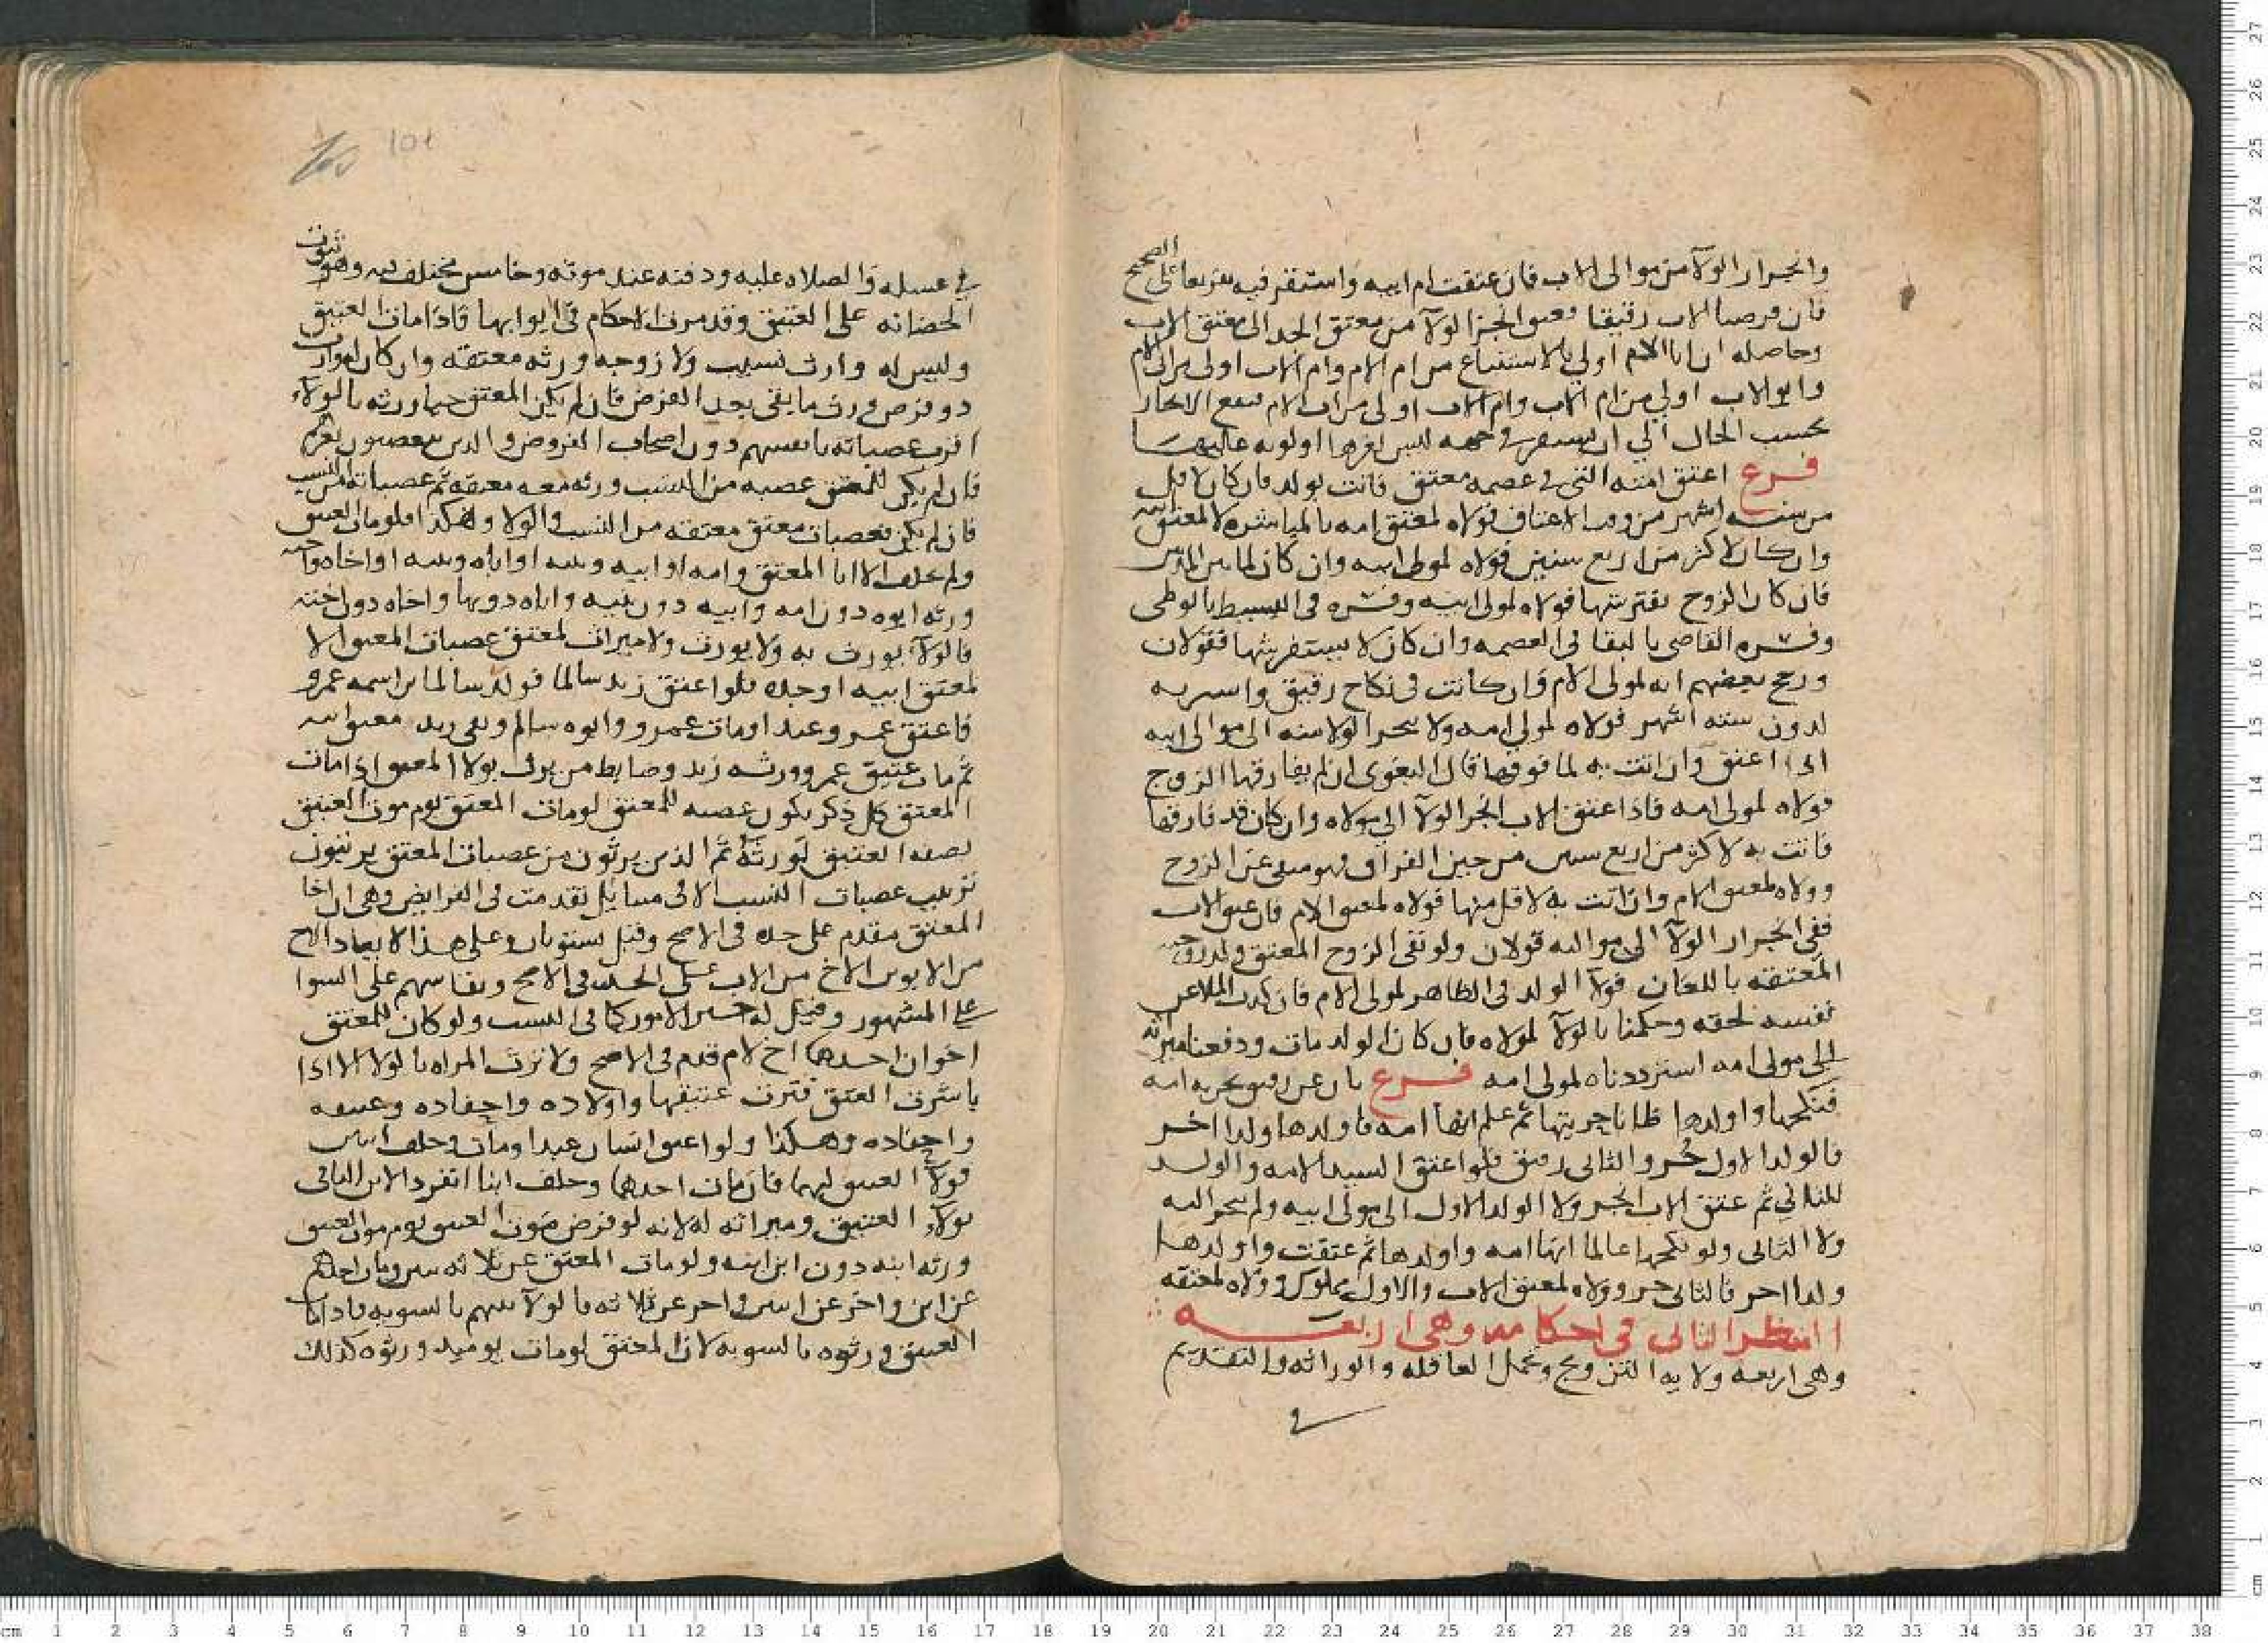 وانجرار الولآ من موالى الاب فان عتقت ام ابيه واستقر فيه تفريعا على الصحيح
فان فرضنا الاب رقيقا فعتق انجز الولآ من معتق الجد الى معتق الاب
وحاصله ان ابا الام اولى بالاستتباع من ام الام وام الاب اولى من ابى الام
وابو الاب اولى من ام الاب وام الاب اولى من اب الام فيقع الانجرار
بحسب الحال الى ان يستقر فى جهه ليس غيرها اولويه عاليها
فرع اعتق امته التى فى عصمه معتق فاتت بولد فان كان لاقل
من سته اشهر من وقت الاعتاق فولاه لمعتق امه بالمباشره لا لمعتق ابيه
وان كان لاكثر من اربع سنين فولاه لمولى ابيه وان كان لما بين المدتين
فان كان الزوج يفترشها فولاه لمولى ابيه وفسره فى البسيط بالوطى
وفسره القاضى بالبقا فى العصمه وان كان لا يستفرشها فقولان
ورجح بعضهم انه لمولى الام وان كانت فى نكاح رقيق واتت به
لدون سته اشهر فولاه لمولى امه ولا ينجر الولا منه الى موالى ابيه
اذا اعتق وان اتت به لما فوقها قال البغوى ان لم يفارقها الزوج
فولاه لمولى امه فاذا عتق الاب انجر الولآ الى مولاه وان كان قد فارقها
فاتت به لاكثر من اربع سنين من حين الفراق فهو منفى عن الزوج
وولاه لمعتق الام وان اتت به لاقل منها فولاه لمعتق الام فان عتق الاب
ففى انجرار الولآ الى مواليه قولان ولو نفى الزوج المعتق ولد زوجته
المعتقه باللعان فولآ الولد فى الظاهر لمولى الام فان كذب الملاعن
نفسه لحقه وحكمنا بالولآ لمولاه فان كان الولد مات ودفعنا ميراثه
الى مولى امه استرددناه لمولى امه فرع بان عن رقيق بحريه امه
فنكحها واولدها ظانا حريتها ثم علم انها امه فاولدها ولدا اخر
فالولد الاول حُر والثانى رقيق فلو اعتق السيد الامه والولد
الثانى ثم عتق الاب انجر ولا الولد الاول الى مولى ابيه ولم ينجر اليه
ولا الثانى ولو نكحها عالما انها امه واولدها ثم عتقت واولدها
ولدا اخر فالثانى حر وولاه لمعتق الاب والاول مملوك وولاه لمعتقه
النظر الثانى فى احكامه وهى اربعه
وهى اربعه ولايه التزويج وتحمل العاقله والوراثه والتقديم
فى
فى غسله والصلاه عليه ودفنه عند موته وخامس مختلف فيه وهو ثبوت
الحضانه على العتيق وقد مرت الاحكام فى ابوابها فاذا مات العتيق
وليس له وارث بنسب ولا زوجيه ورثه معتقه وان كان له وارث
ذو فرض ورث ما بقى بعد الفرض فان لم يكن المعتق حيا ورثه بالولآء
اقرب عصباته بانفسهم دون اصحاب الفروض والذين يتعصبون بغيرهم
فان لم يكن للمعتق عصبه من النسب ورثه معتق معتقه ثم عصباته من النسب
فان لم يكن فعصبات معتق معتقه من النسب والولا وهكذا فلو مات العتيق
ولم يخلف الا ابا المعتق وامه او ابيه وبنته او اباه وبنته او اخاه واخته
ورثه ابوه دون امه وابيه دون بنيه واباه دونها واخاه دون اخته
فالولآ يورث به ولا يورث ولا ميراث لمعتق عصبات المعتق الا
لمعتق ابيه او جده فلو اعتق زيد سالما فولد سالما بن اسمه عمرو
فاعتق عمرو عبدا ومات عمرو وابوه سالم وبقى زيد معتق ابيه
ثم مات عتيق عمرو ورثه زيد وضابط من يرث بولا المعتق اذا مات
المعتق كل ذكر يكون عصبه للمعتق لو مات المعتق يوم موت العتيق
بصفه العتيق لورثهُ ثم الذين يرثون من عصبات المعتق يرثون
ترتيب عصبات النسب الا فى مسايل تقدمت فى الفرايض وهى ان اخا
المعتق مقدم على جده فى الاصح وقيل يستويان وعلى هذا
من الابوين الاخ من الاب على الجد فى الاصح ويقاسهم على السوا
على المشهور وقيل له خير الامور كما فى النسب ولو كان للمعتق
اخوان احدهما اخ لام قدم فى الاصح ولا ترث المراه بالولا الا اذا
باشرت العتق فترث عتيقها واولاده واحفاده وعتيقه
واحفاده وهكذا ولو اعتق انسان عبدا ومات وخلف ابنين
فولآء العتيق لهما فان مات احدهما وخلف ابنا انفرد الابن الثانى
بولآء العتيق وميراثه له لانه لو فرض موت العتيق يوم موت العتيق
ورثه ابنه دون ابن ابنه ولو مات المعتق عن ثلاثه بنين ومات احدهم
عن ابن واخر عن ابنين واخر عن ثلاثه فالولآ بينهم بالسويه فاذا مات
العتيق ورثوه بالسويه لان المعتق لو مات يوميذ ورثوه كذلك